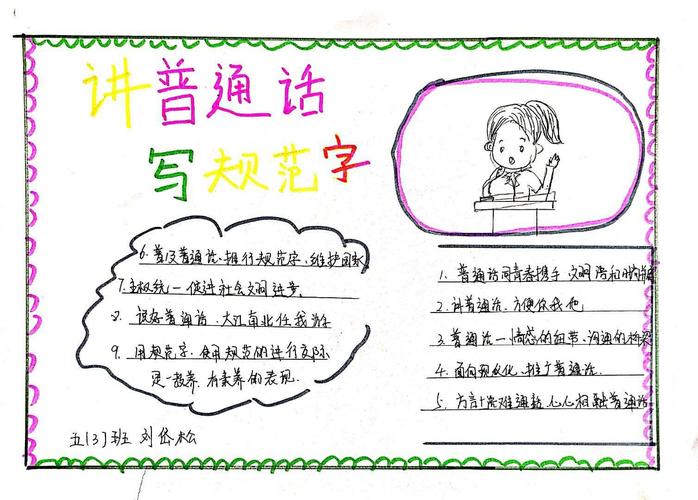 讲普通话
写规范字
6. 普及普通话、推行规范字、维护国家
7. 主权统一 促进社会文明进步。
8. 说好普通话，大江南北任我游
9. 用规范字，使用规范的进行交际
是一教养、有素养的表现.
1. 普通话同青春携手 文明语和时尚
2. 讲普通话，方便你我他
3. 普通话—情感的纽带、沟通的桥梁
4. 面向现代化，推广普通话
5. 方言 难通 心心相融普通话
五(3)班 刘岱松